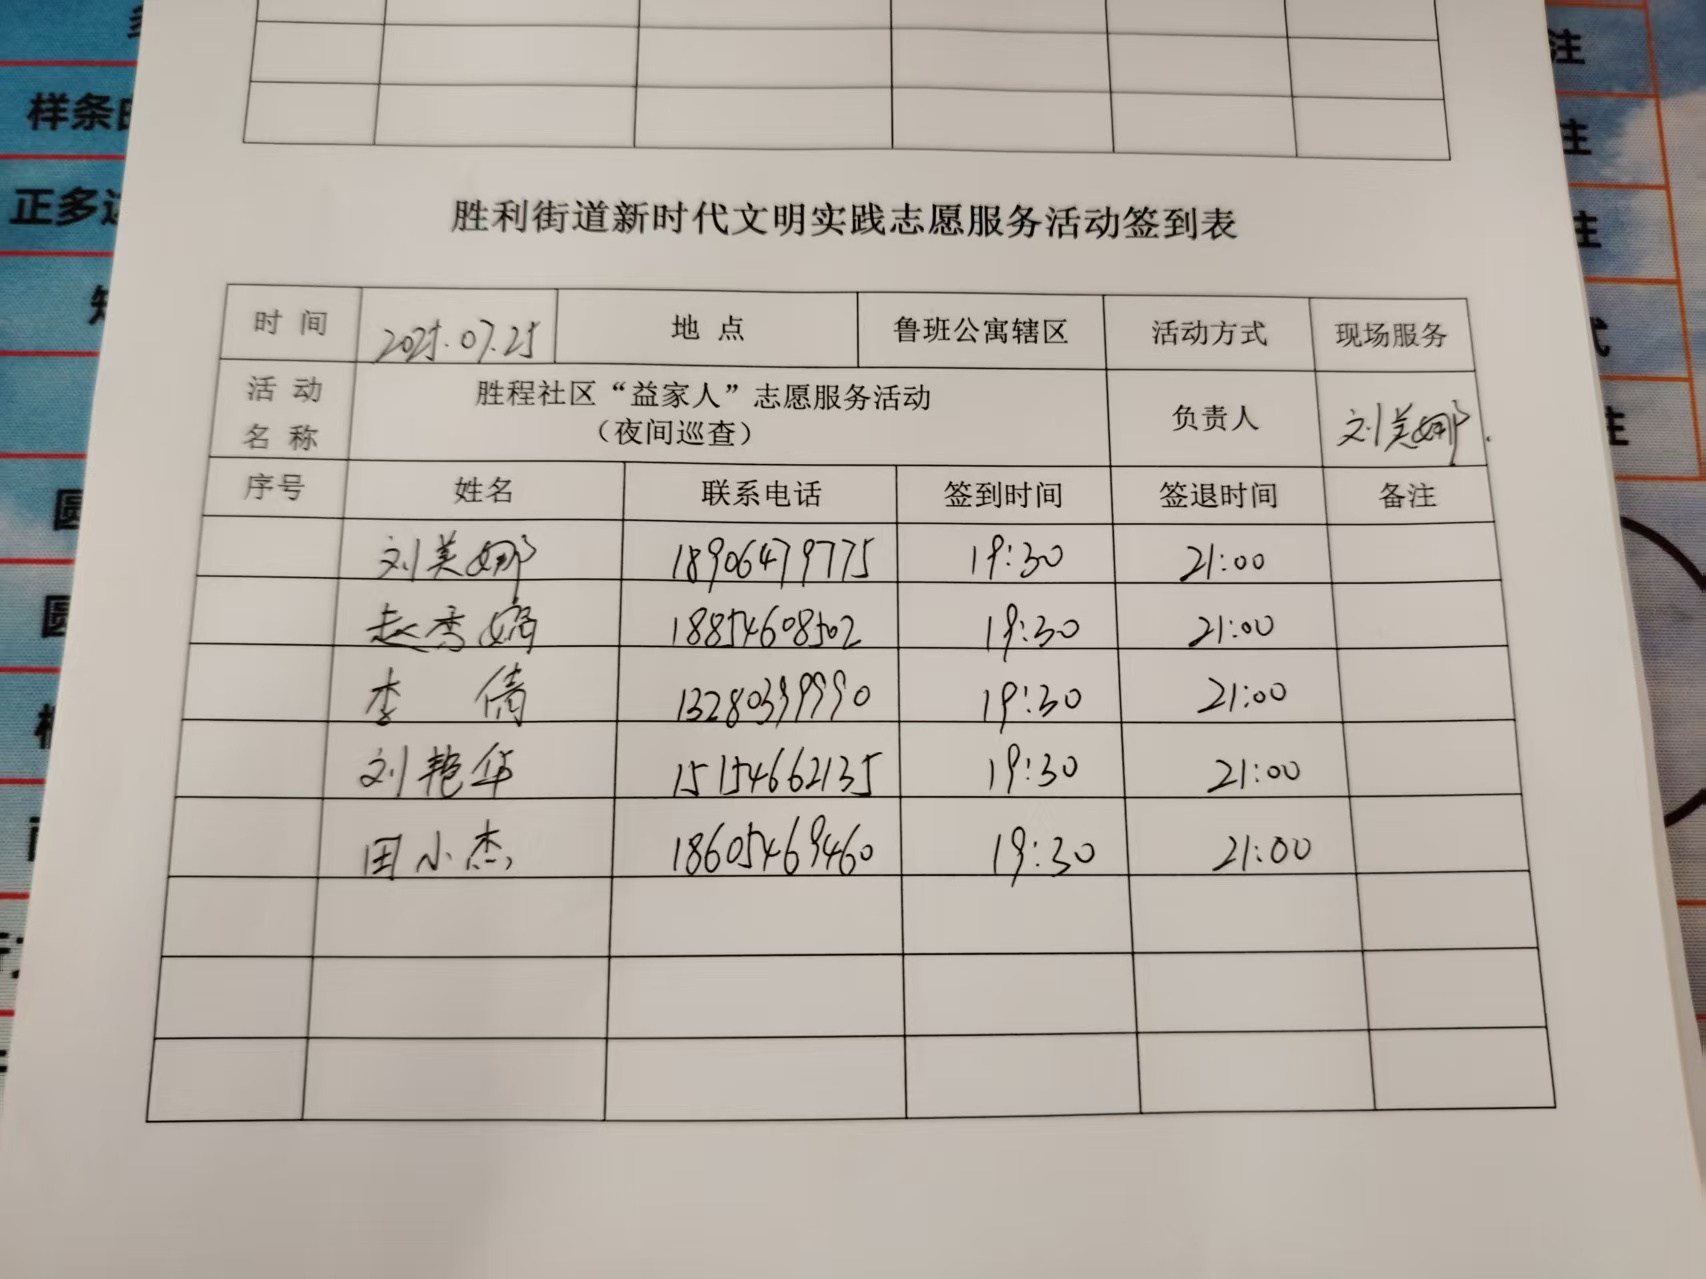 胜利街道新时代文明实践志愿服务活动签到表
时 间 2025.07.25 地 点 鲁班公寓辖区 活动方式 现场服务
活 动 名 称 胜程社区“益家人”志愿服务活动
（夜间巡查） 负责人 刘美娜
序号 姓名 联系电话 签到时间 签退时间 备注
刘美娜 18906479775 19:30 21:00
赵秀娟 18854608502 19:30 21:00
李 倩 13280399990 19:30 21:00
刘艳华 15154662135 19:30 21:00
田小杰 18605469460 19:30 21:00
样条
正多
圆
圆
注
注
注
式
注